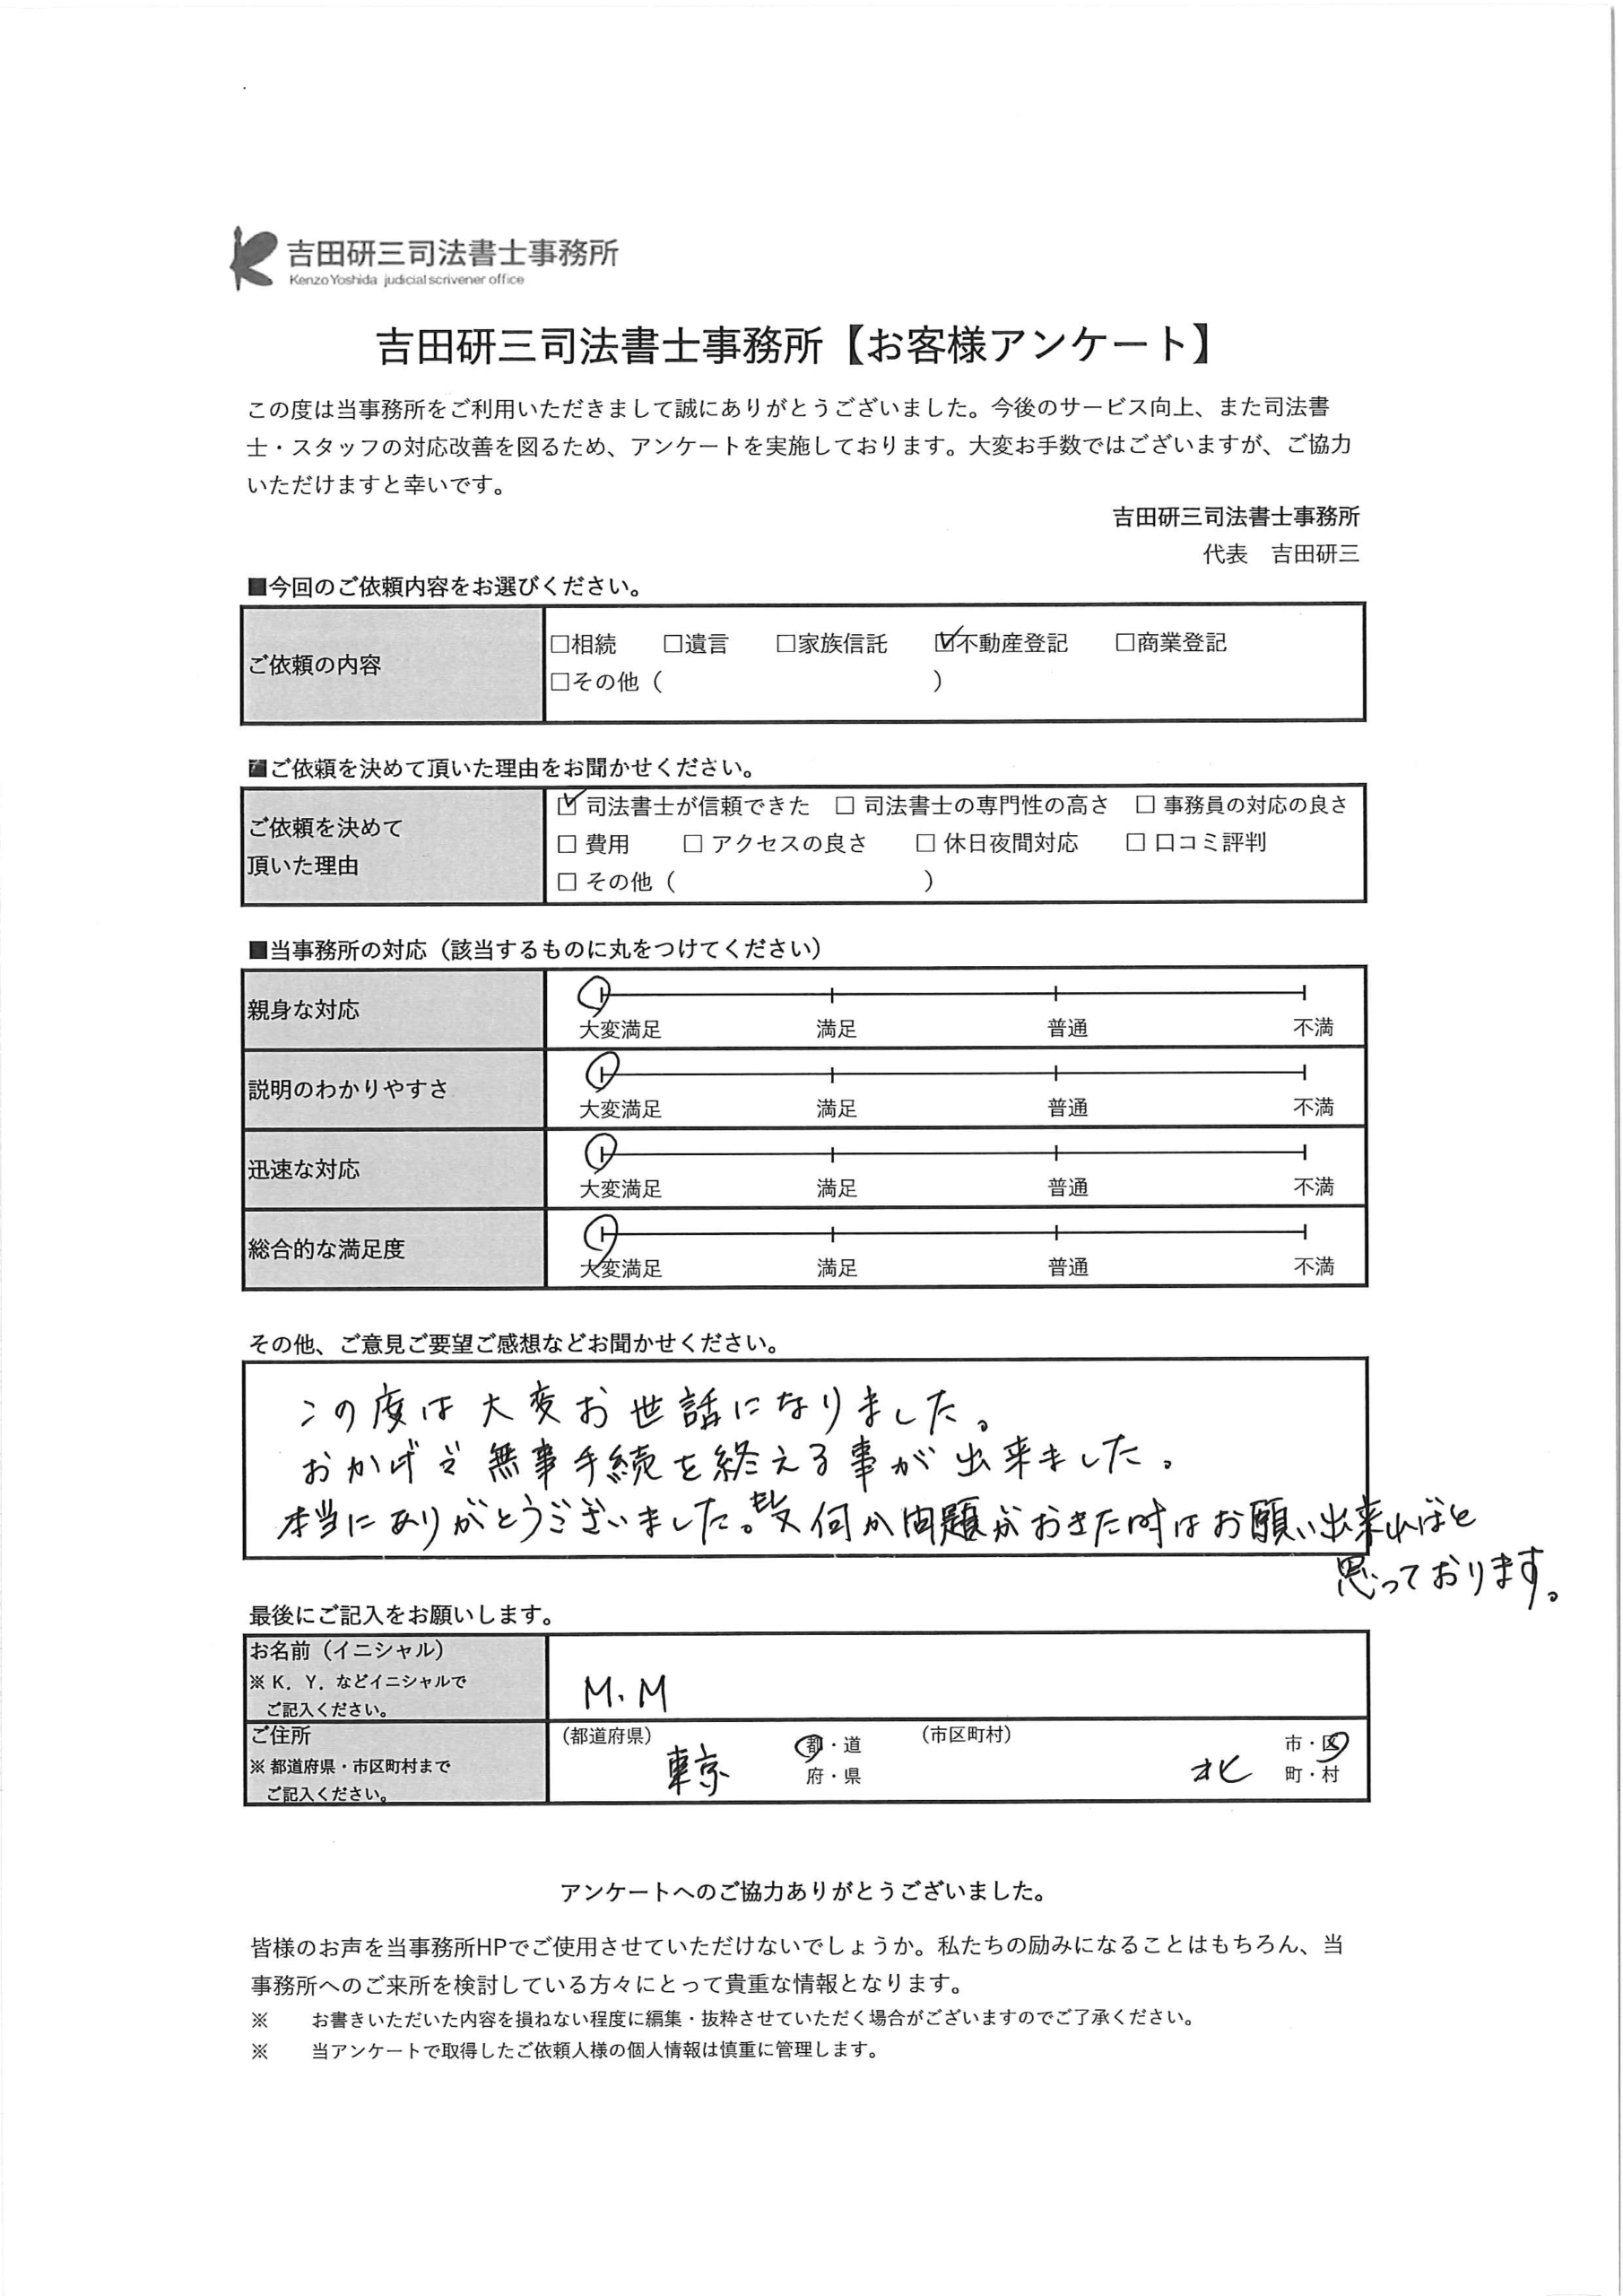 吉田研三司法書士事務所
Kenzo Yoshida judicial scrivener office
吉田研三司法書士事務所【お客様アンケート】
この度は当事務所をご利用いただきまして誠にありがとうございました。今後のサービス向上、また司法書
士・スタッフの対応改善を図るため、アンケートを実施しております。大変お手数ではございますが、ご協力
いただけますと幸いです。
吉田研三司法書士事務所
代表　吉田研三
■今回のご依頼内容をお選びください。
ご依頼の内容
□相続　□遺言　□家族信託　☑不動産登記　□商業登記
□その他（　　　）
■ご依頼を決めて頂いた理由をお聞かせください。
ご依頼を決めて
頂いた理由
☑ 司法書士が信頼できた　□ 司法書士の専門性の高さ　□ 事務員の対応の良さ
□ 費用　□ アクセスの良さ　□ 休日夜間対応　□ 口コミ評判
□ その他（　　　）
■当事務所の対応（該当するものに丸をつけてください）
親身な対応
大変満足　満足　普通　不満
説明のわかりやすさ
大変満足　満足　普通　不満
迅速な対応
大変満足　満足　普通　不満
総合的な満足度
大変満足　満足　普通　不満
その他、ご意見ご要望ご感想などお聞かせください。
この度は大変お世話になりました。
おかげで無事手続を終える事が出来ました。
本当にありがとうございました。又何か問題がおきた時はお願い出来ればと
思っております。
最後にご記入をお願いします。
お名前（イニシャル）
※ K．Y．などイニシャルで
ご記入ください。
M.M
ご住所
※ 都道府県・市区町村まで
ご記入ください。
（都道府県）　東京　都・道
府・県
（市区町村）　北　市・区
町・村
アンケートへのご協力ありがとうございました。
皆様のお声を当事務所HPでご使用させていただけないでしょうか。私たちの励みになることはもちろん、当
事務所へのご来所を検討している方々にとって貴重な情報となります。
※　お書きいただいた内容を損ねない程度に編集・抜粋させていただく場合がございますのでご了承ください。
※　当アンケートで取得したご依頼人様の個人情報は慎重に管理します。